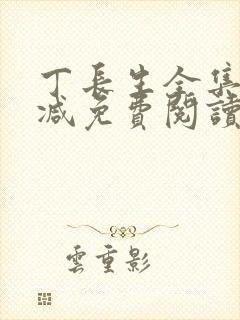 丁長生全集
減免費閱讀
雲重影